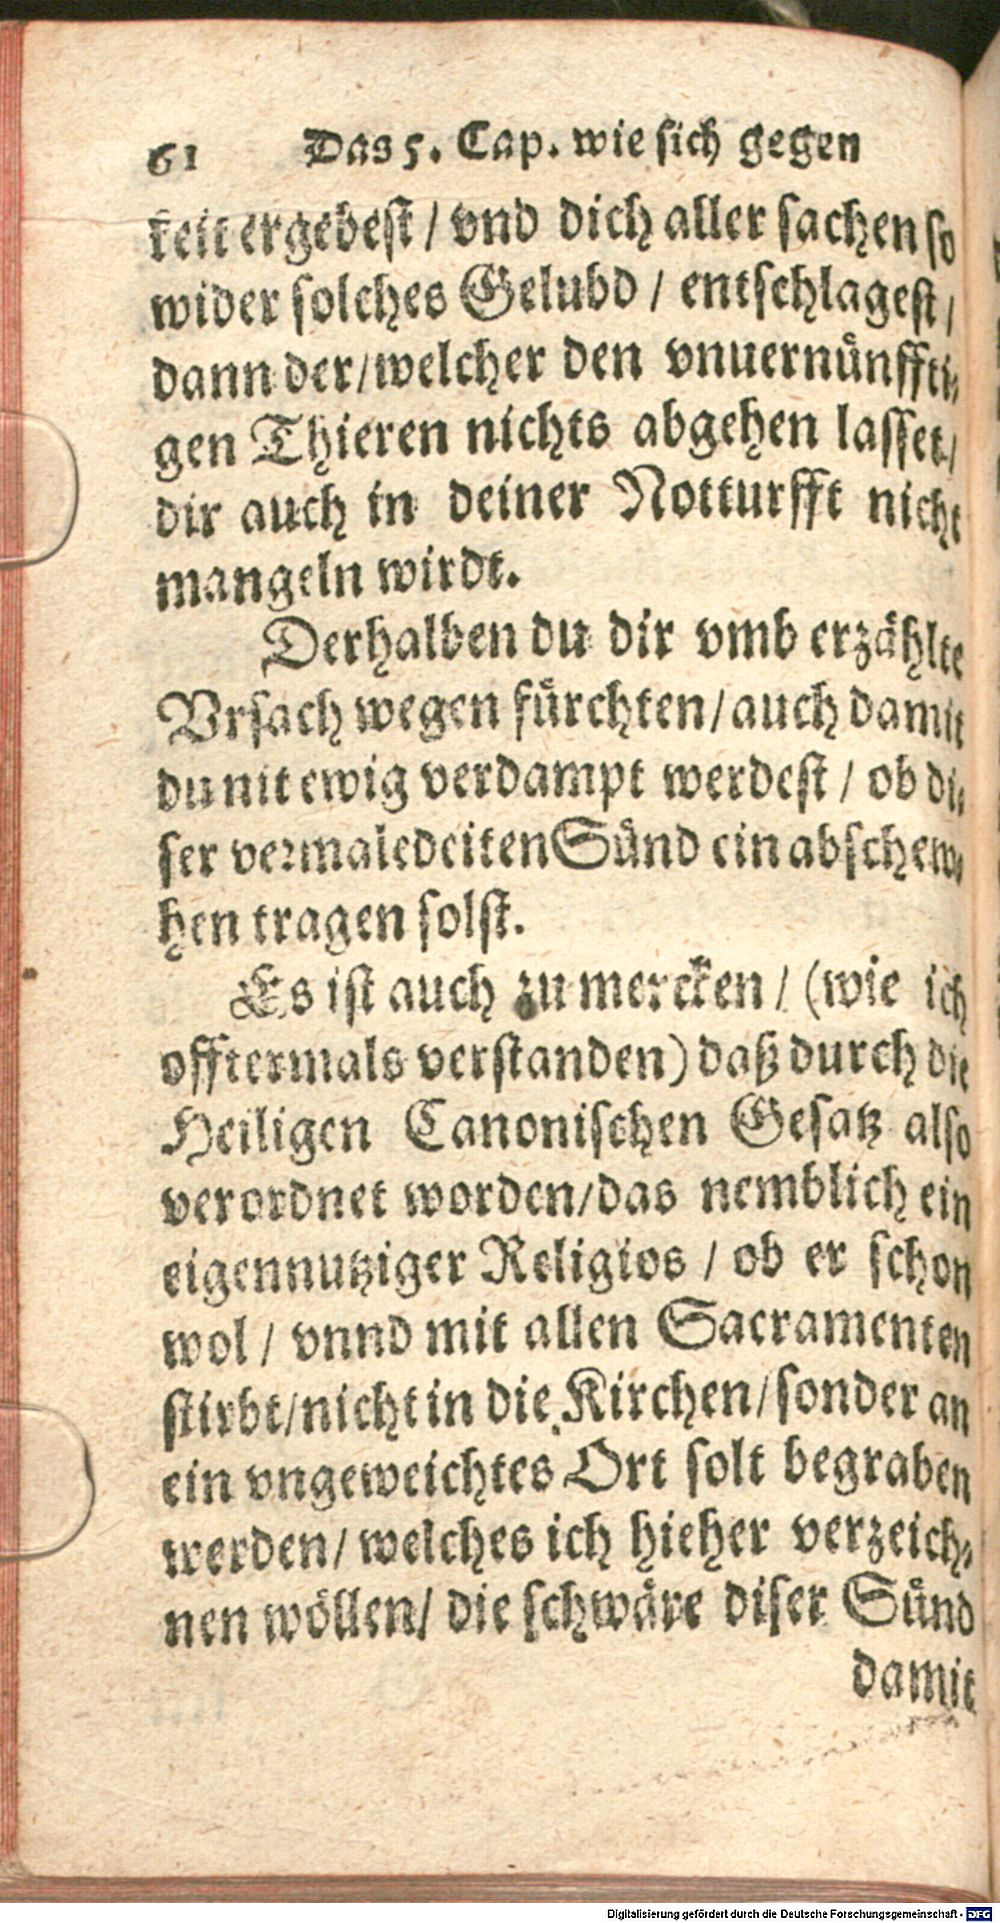 61 Das 5. Cap. wie sich gegen
keit ergebest / vnd dich aller sachen so
wider solches Gelubd / entschlagest /
dann der / welcher den vnuernünffti-
gen Thieren nichts abgehen lasset /
dir auch in deiner Notturfft nicht
mangeln wirdt.
Derhalben du dir vmb erzählte
Vrsach wegen fürchten / auch damit
du nit ewig verdampt werdest / ob di-
ser vermaledeiten Sünd ein abschew-
hen tragen solst.
Es ist auch zu mercken / (wie ich
offtermals verstanden) daß durch die
Heiligen Canonischen Gesatz also
verordnet worden / das nemblich ein
eigennutziger Religios / ob er schon
wol / vnnd mit allen Sacramenten
stirbt / nicht in die Kirchen / sonder an
ein vngeweichtes Ort solt begraben
werden / welches ich hieher verzeich-
nen wöllen / die schwäre diser Sünd
damit
Digitalisierung gefördert durch die Deutsche Forschungsgemeinschaft - DFG